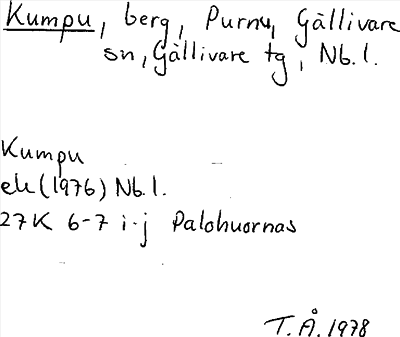 Kumpu, berg, Purnu, Gällivare
sn, Gällivare tg, Nb. l.
Kumpu
ek (1976) Nb. l.
27K 6-7 i-j Palohuornas
T. Å. 1978